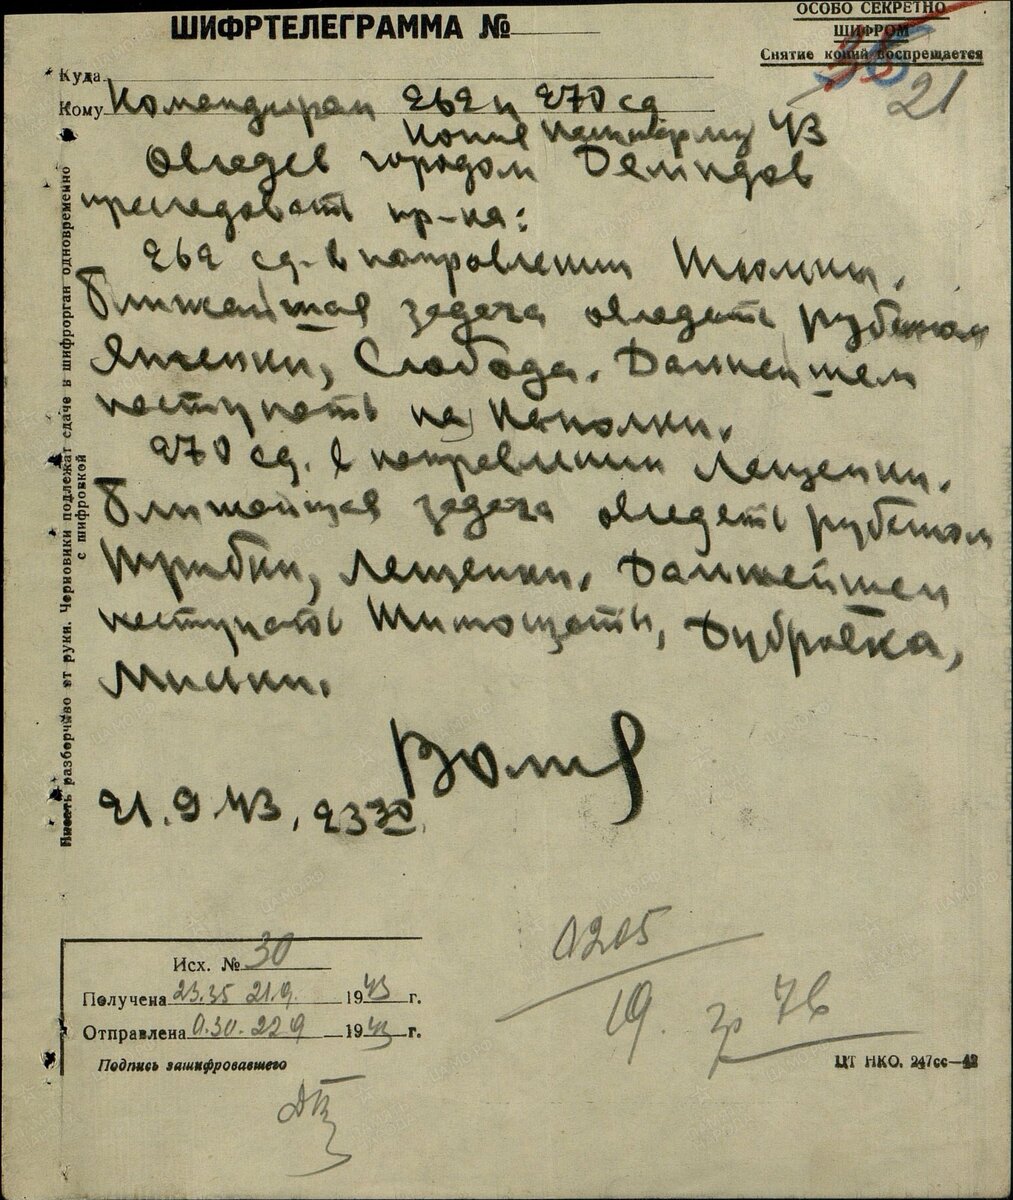 ШИФРТЕЛЕГРАММА №
ОСОБО СЕКРЕТНО
ШИФРОМ
Снятие копий воспрещается
21
Куда
Кому Командирам 262 и 270 сд
Копия 43
Овладев городом Демидов
преследовать пр-ка:
262 сд. в направлении
Ближайшая задача овладеть рубежом
Слобода. Дальнейшем
наступать на
270 сд. в направлении Лещенки.
Ближайшая задача овладеть рубежом
Лещенки. Дальнейшем
наступать Дубровка,
21.9.43, 23 30
Писать разборчиво от руки. Черновики подлежат сдаче в шифрорган одновременно
с шифровкой
Исх. № 30
Получена 23.35 21.9. 1943 г.
Отправлена 0.30 22.9 1943 г.
Подпись зашифровавшего
0205
19. 76
ЦТ НКО. 247сс—42